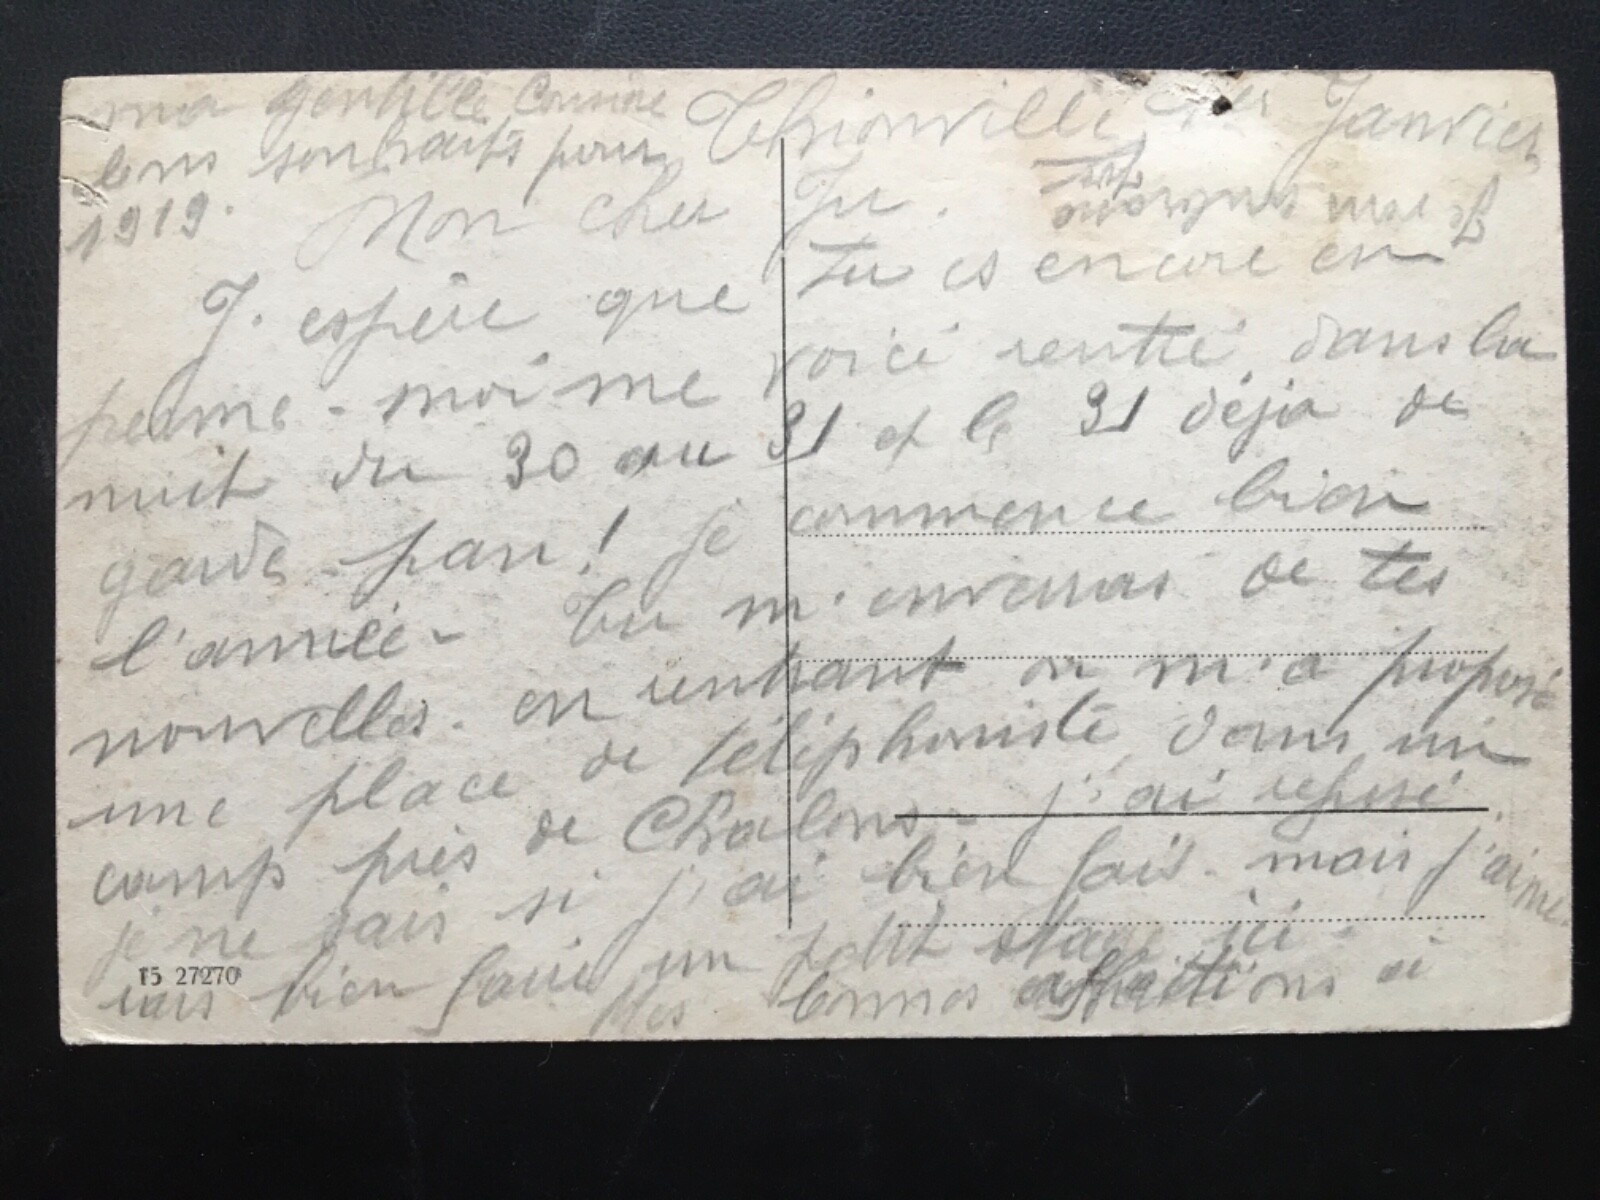 Thionville 1er Janvier
Mon cher Ju.
J'espère que tu es encore en
perme - moi me voici rentré dans la
nuit du 30 au 31 et le 31 déjà de
garde - pan! je commence bien
l'année - Tu m'enverras de tes
nouvelles. en rentrant on m'a proposé
une place de téléphoniste dans un
camp près de Chalons - j'ai refusé.
je ne sais si j'ai bien fais. mais j'aime
rais bien faire un petit stage ici.
Mes bonnes affections à
ma gentille Cousine
bons souhaits pour
1919.
Je t'em
15 27270